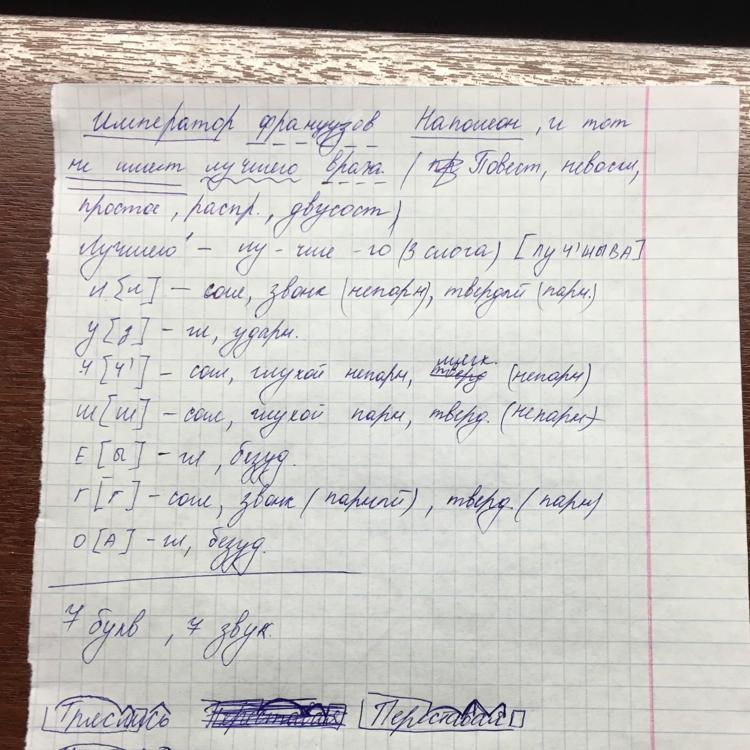 Император французов Наполеон, и тот
не имеет лучшего врага. (Повест, невоскл,
простое, распр., двусост)
Лучшего - лу - чше - го (3 слога) [луч'шыва]
л [л] - согл, звонк (непарн), твердый (парн.)
у [у] - гл, ударн.
ч [ч'] - согл, глухой непарн, мягк. (непарн)
ш [ш] - согл, глухой парн, тверд. (непарн)
Е [ы] - гл, безуд.
г [г] - согл, звонк (парный), тверд. (парн)
О [А] - гл, безуд.
7 букв, 7 звук.
Трясясь Переставая